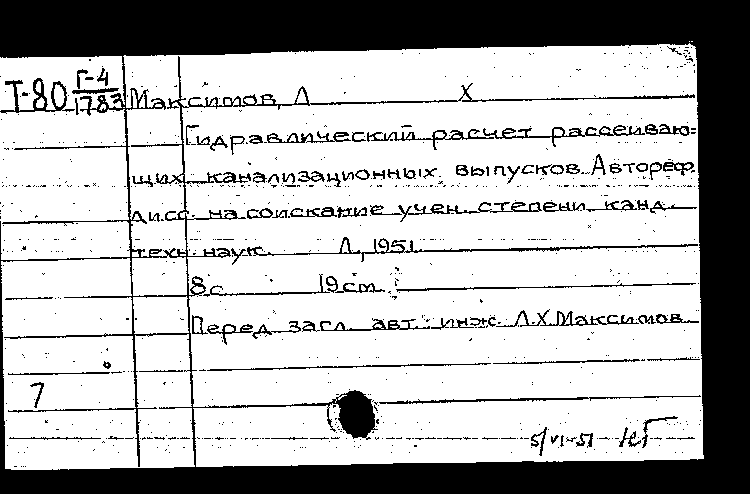 Т-80 Г-4
1783
Максимов, Л Х
Гидравлический расчет рассеиваю=
щих канализационных выпусков. Автореф.
дисс. на соискание учен. степени канд.
техн. наук. Л., 1951.
8с 19 см.
Перед загл. авт.: инж. Л.Х. Максимов
7
5/VI-51